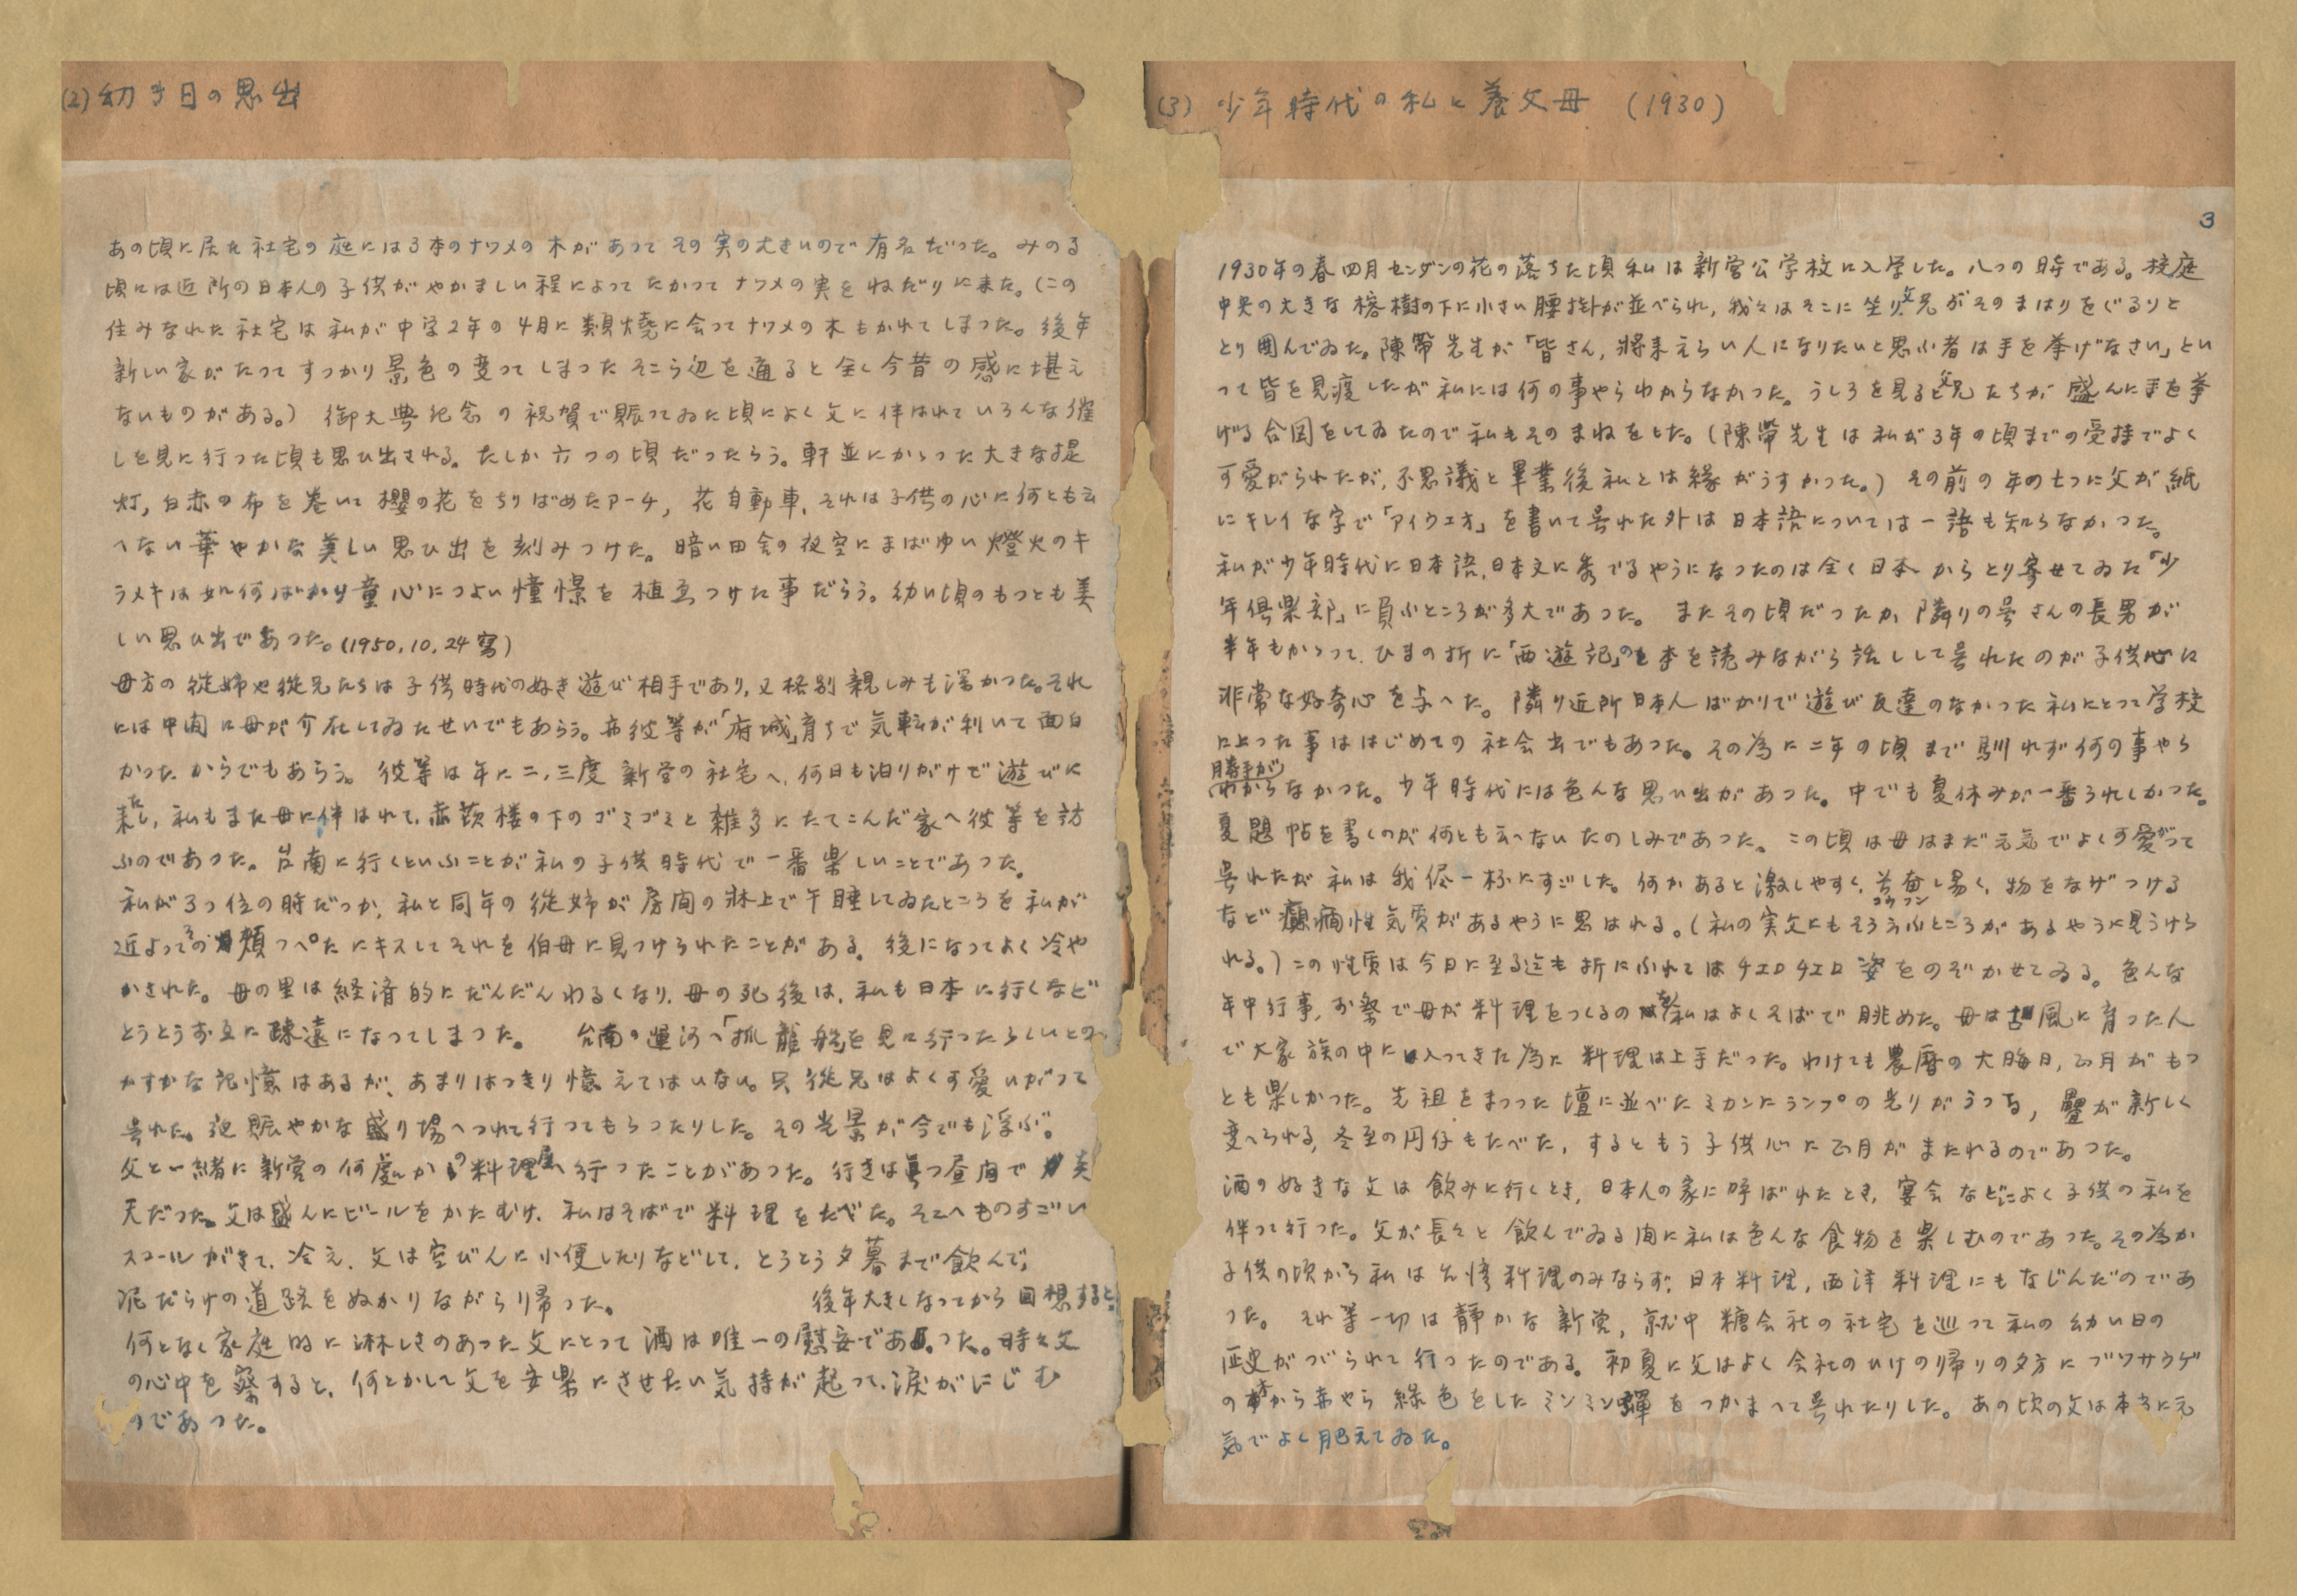 (2) 幼き日の思出
あの頃に居た社宅の庭には3本のナツメの木があつてその実の大きいので有名だつた。みのる
頃には近所の日本人の子供がやかましい程によつてたかつてナツメの実をねだりに来た。(この
住みなれた社宅は私が中学2年の4月に類焼に会つてナツメの木もかれてしまつた。後年
新しい家がたつてすつかり景色の変つてしまつたそこら辺を通ると全く今昔の感に堪え
ないものがある。) 御大典紀念の祝賀で賑つてゐた頃によく父に伴はれていろんな催
しを見に行つた頃も思ひ出される。たしか六つの頃だつたらう。軒並にかゝつた大きな提
灯,白赤の布を巻いて櫻の花をちりばめたアーチ,花自動車,それは子供の心に何とも云
へない華やかな美しい思ひ出を刻みつけた。暗い田舎の夜空にまばゆい燈火のキ
ラメキは如何ばかり童心につよい憧憬を植ゑつけた事だらう。幼い頃のもつとも美
しい思ひ出であつた。(1950.10.24寫)
母方の従姉や従兄たちは子供時代のぬき遊び相手であり,又格別親しみも深かつた。それ
には中間に母が介在してゐたせいでもあらう。亦彼等が「府城」育ちで気転が利いて面白
かつたからでもあらう。彼等は年に二,三度新営の社宅へ,何日も泊りがけで遊びに
来たし,私もまた母に伴はれて,赤嵌樓の下のゴミゴミと雑多にたてこんだ家へ彼等を訪
ふのであつた。台南に行くといふことが私の子供時代で一番楽しいことであつた。
私が3つ位の時だつか,私と同年の従姉が房間の牀上で午睡してゐたところを私が
近よつてその頬つぺたにキスしてそれを伯母に見つけられたことがある。後になつてよく冷や
かされた。母の里は経済的にだんだんわるくなり,母の死後は,私も日本に行くなど
とうとうお互に疎遠になつてしまつた。 台南の運河へ「抓龍船」を見に行つたらしいとの
かすかな記憶はあるが,あまりはつきり憶えてはいない。只従兄はよく可愛いがつて
呉れた。迎賑やかな盛り場へつれて行つてもらつたりした。その光景が今でも浮ぶ。
父と一緒に新営の何處かの料理屋へ行つたことがあつた。行きは真つ昼間で炎
天だつた。父は盛んにビールをかたむけ,私はそばで料理をたべた。そこへものすごい
スコールがきて,冷え,父は空びんに小便したりなどして,とうとう夕暮まで飲んで,
泥だらけの道路をぬかりながら帰つた。 後年大きくなつてから回想すると,
何となく家庭的に淋しさのあつた父にとつて酒は唯一の慰安であつた。時々父
の心中を察すると,何とかして父を安楽にさせたい気持が起つて,涙がにじむ
のであつた。
(3) 少年時代の私と養父母 (1930)
3
1930年の春四月センダンの花の落ちた頃私は新営公学校に入学した。八つの時である。校庭
中央の大きな榕樹の下に小さい腰掛が並べられ,我々はそこに坐り,父兄がそのまはりをぐるりと
とり囲んでゐた。陳幣先生が「皆さん,將来えらい人になりたいと思ふ者は手を挙げなさい」とい
つて皆を見渡したが私には何の事やらわからなかつた。うしろを見ると父兄たちが盛んに手を挙
げる合図をしてゐたので私もそのまねをした。(陳幣先生は私が3年の頃までの受持でよく
可愛がられたが,不思議と畢業後私とは縁がうすかつた。) その前の年の七つに父が紙
にキレイな字で「アイウエオ」を書いて呉れた外は日本語については一語も知らなかつた。
私が少年時代に日本語,日本文に秀でるやうになつたのは全く日本からとり寄せてゐた「少
年倶楽部」に負ふところが多大であつた。またその頃だつたか,隣りの呉さんの長男が
半年もかゝつて,ひまの折に「西遊記」の本を読みながら話しして呉れたのが子供心に
非常な好奇心を与へた。隣り近所日本人ばかりで遊び友達のなかつた私にとつて学校
に上つた事ははじめての社会出でもあつた。その為に二年の頃まで馴れず何の事やら
勝手がわからなかつた。少年時代には色んな思い出があつた。中でも夏休みが一番うれしかつた。
夏題帖を書くのが何とも云へないたのしみであつた。この頃は母はまだ元気でよく可愛がつて
呉れたが私は我侭一杯にすごした。何かあると激しやすく,昂奮し易く,物をなげつける
コウフン
など癲癇性気質があるやうに思はれる。(私の実父にもそう云ふところがあるやうに見うけら
れる。)この性質は今日に至る迄も折にふれてはチエロチエロ姿をのぞかせてゐる。色んな
年中行事,お祭で母が料理をつくるのを私はよくそばで眺めた。母は古風に育つた人
で大家族の中に入つてきた為に料理は上手だつた。わけても農暦の大晦日,正月がもつ
とも楽しかつた。先祖をまつつた壇に並べたミカンにランプの光りがうつる,疊が新しく
変へられる,冬至の円仔もたべた,するともう子供心に正月がまたれるのであつた。
酒の好きな父は飲みに行くとき,日本人の家に呼ばれたとき,宴会などによく子供の私を
伴つて行つた。父が長々と飲んでゐる間に私は色んな食物を楽しむのであつた。その為か
子供の頃から私は台湾料理のみならず,日本料理,西洋料理にもなじんだのであ
つた。それ等一切は静かな新営,就中糖会社の社宅を巡つて私の幼い日の
歴史がつづられて行つたのである。初夏に父はよく会社のひけの帰りの夕方にブツサウゲ
の木から赤やら緑色をしたミンミン蝉をつかまへて呉れたりした。あの頃の父は本当に元
気でよく肥えてゐた。